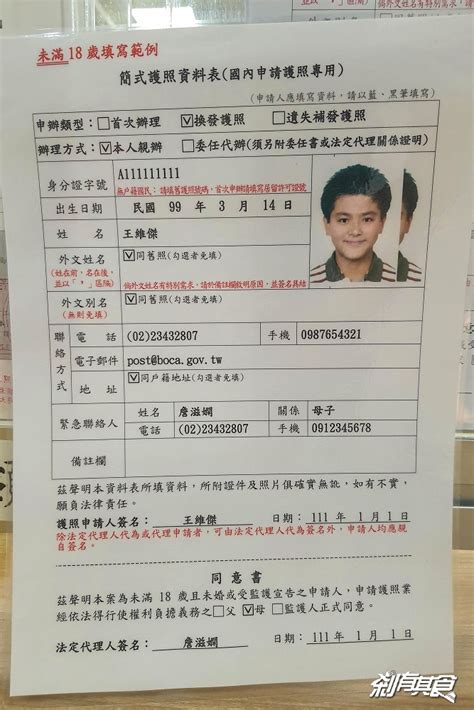 未滿18歲填寫範例
簡式護照資料表(國內申請護照專用)
(申請人應填寫資料，請以藍、黑筆填寫)
申辦類型：□首次辦理 ☑換發護照 □遺失補發護照
辦理方式：☑本人親辦 □委任代辦(須另附委任書或法定代理關係證明)
身分證字號 A111111111
無戶籍國民：請填舊護照號碼，首次申辦請填寫居留許可證號
出生日期 民國 99 年 3 月 14 日
姓名 王維傑
外文姓名 ☑同舊照(勾選者免填)
(姓在前，名在後，並以「，」區隔)
倘外文姓名有特別需求，請於備註欄敘明原因，並簽名具結
外文別名 ☑同舊照(勾選者免填)
(無則免填)
聯絡方式 電話 (02)23432807 手機 0987654321
電子郵件 post@boca.gov.tw
地址 ☑同戶籍地址(勾選者免填)
緊急聯絡人 姓名 詹滋嫻 關係 母子
電話 (02)23432807 手機 0912345678
備註欄
茲聲明本資料表所填資料，所附證件及照片俱確實無訛，如有不實，
願負法律責任。
護照申請人簽名：王維傑 日期：111 年 1 月 1 日
除法定代理人代為或代理申請者，可由法定代理人代為簽名外，申請人均應親
自簽名。
同意書
茲聲明本案為未滿 18 歲且未婚或受監護宣告之申請人，申請護照業
經依法得行使權利負擔義務之□父 ☑母 □監護人正式同意。
法定代理人簽名：詹滋嫻 日期：111 年 1 月 1 日
剎有其食